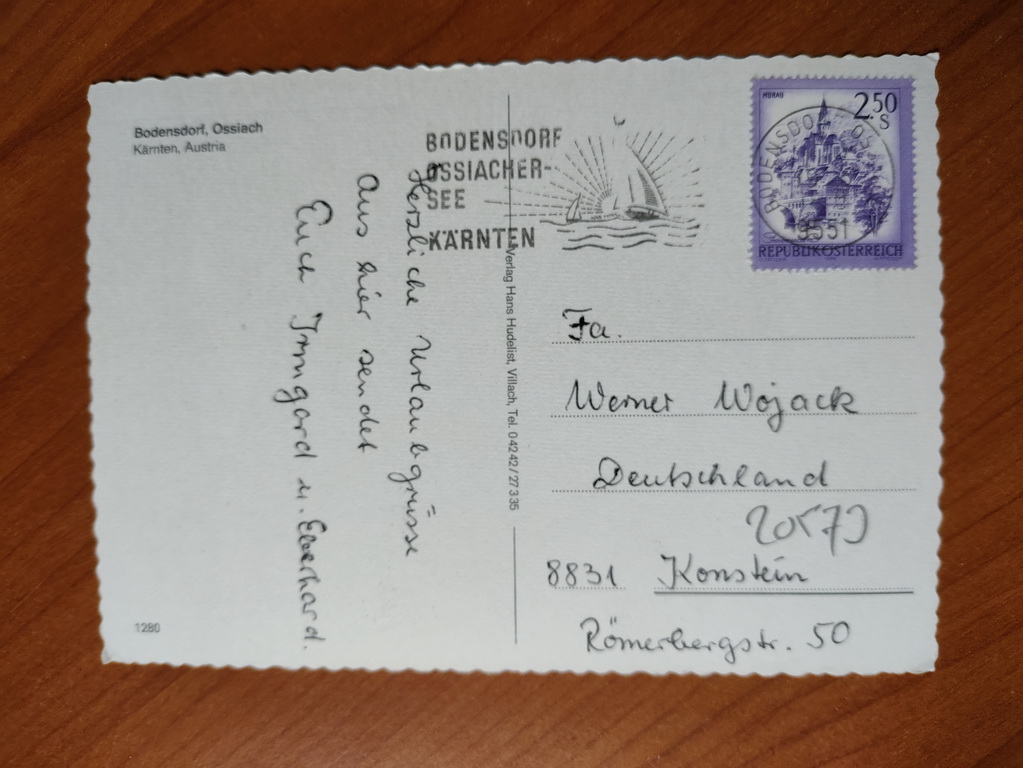 Bodensdorf, Ossiach
Kärnten, Austria
BODENSDORF
OSSIACHER-
SEE
KÄRNTEN
MURAU
2.50
S
BODENSDORF
9551
REPUBLIK ÖSTERREICH
Herzliche Urlaubgrüsse
Aus hier sendet
Euch Irmgard u. Eberhard.
Verlag Hans Hudelist, Villach, Tel. 04242/27335
Fa.
Werner Wojack
Deutschland
8831 Konstein
Römerbergstr. 50
1280